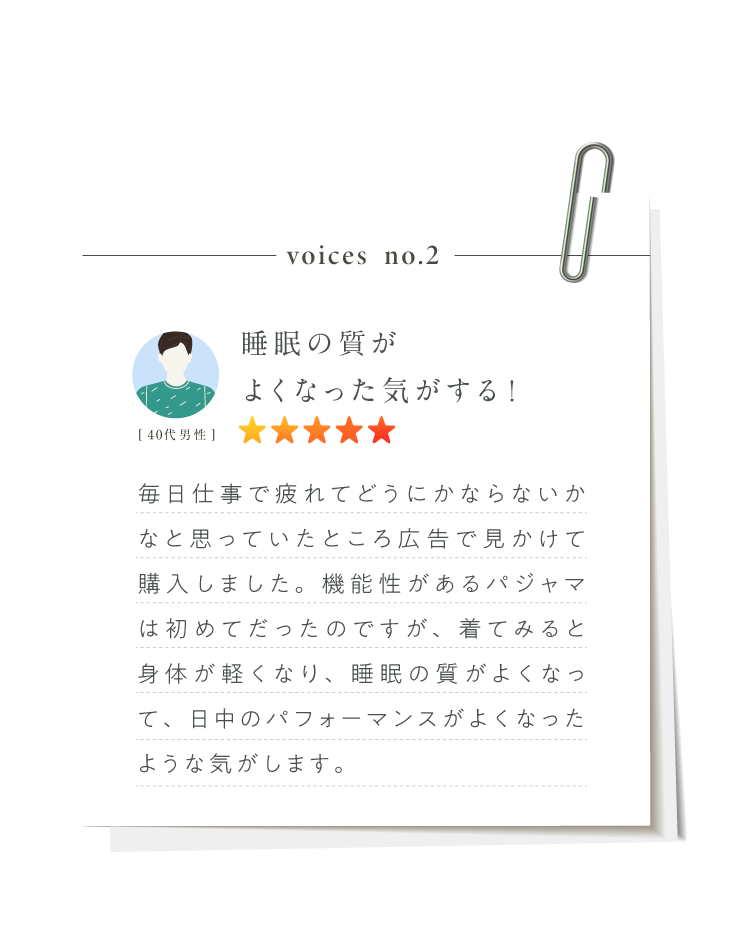 voices no.2
睡眠の質が
よくなった気がする!
[ 40代男性 ]
毎日仕事で疲れてどうにかならないか
なと思っていたところ広告で見かけて
購入しました。機能性があるパジャマ
は初めてだったのですが、着てみると
身体が軽くなり、睡眠の質がよくなっ
て、日中のパフォーマンスがよくなった
ような気がします。